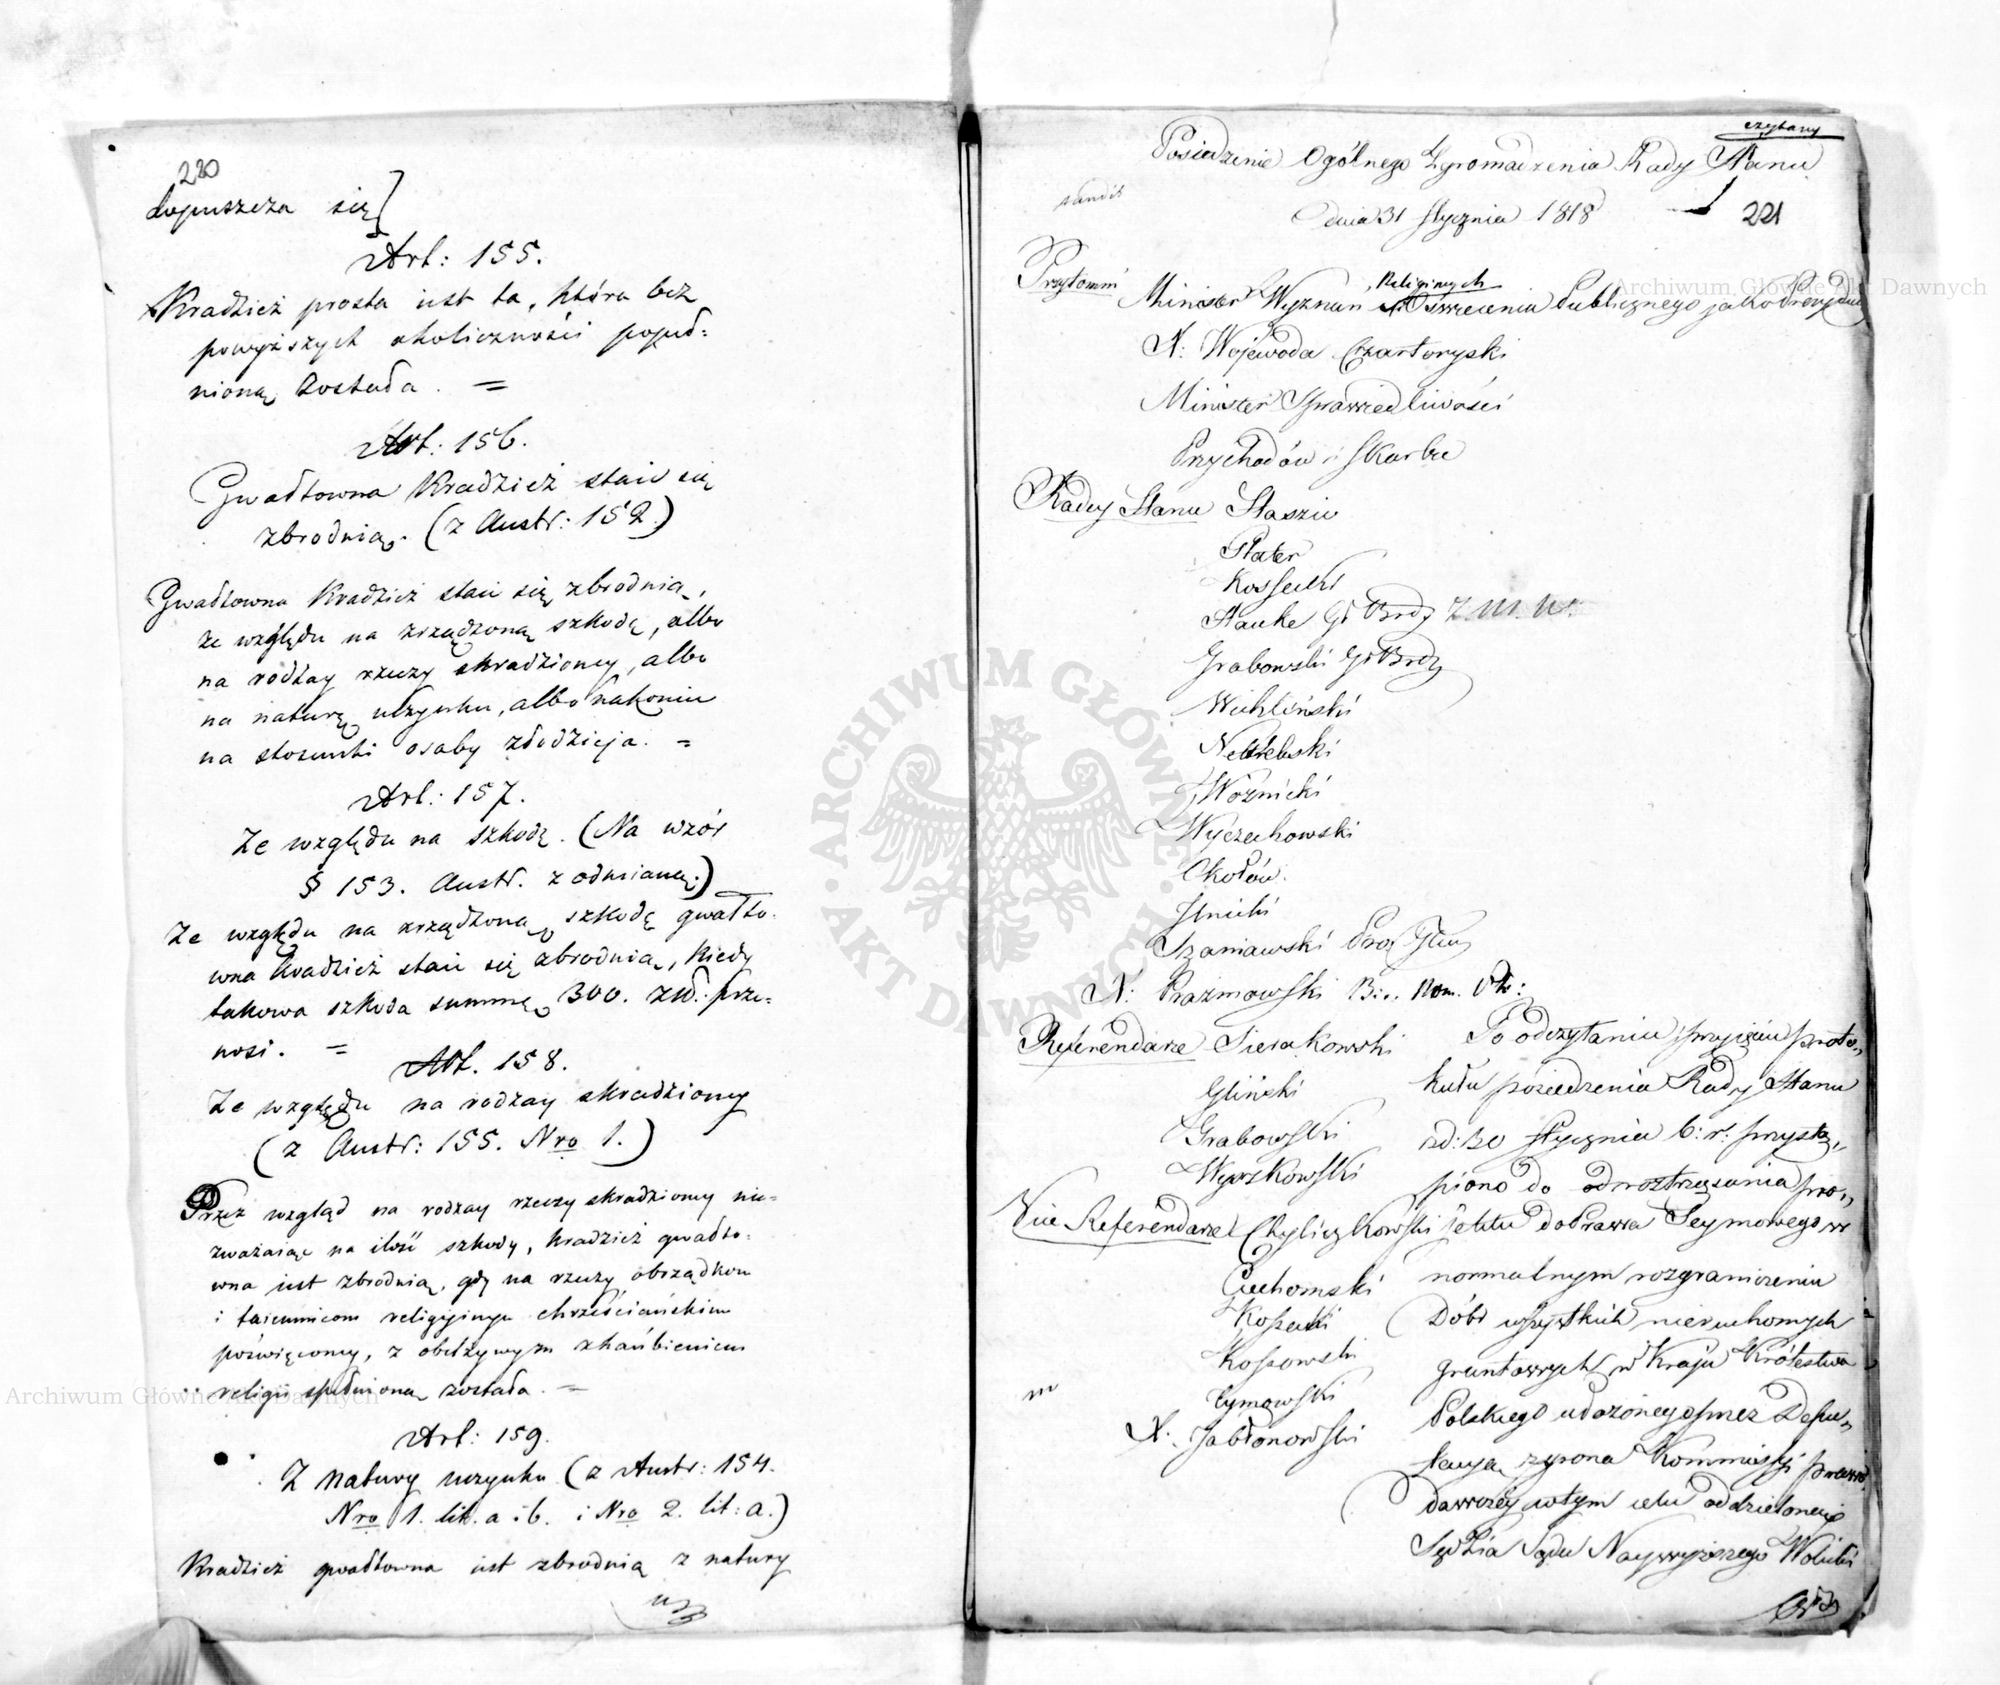 220
dopuszcza się]
Art: 155.
Kradzież prosta iest ta, która bez
powyższych okoliczności popeł=
nioną została. =
Art: 156.
Gwałtowna Kradzież staie się
zbrodnią. (z Austr: 152.)
Gwałtowna Kradzież staie się zbrodnią,
ze względu na zrządzoną szkodę, albo
na rodzay rzeczy skradzioney, albo
na naturę uczynku, albo nakoniec
na stosunki osoby złodzieja. =
Art: 157.
Ze względu na szkodę. (Na wzór
§ 153. Austr. z odmianą.)
Ze względu na zrządzoną szkodę gwałto-
wna Kradzież staie się zbrodnią, kiedy
takowa szkoda summę 300. złł. prze-
nosi. =
Art. 158.
Ze względu na rodzay skradzioney
(z Austr: 155. Nro 1.)
Przez wzgląd na rodzay rzeczy skradzioney nie-
zważaiąc na ilość szkody, kradzież gwałto-
wna iest zbrodnią, gdy na rzeczy obrządkom
i taiemnicom religijnym chrześciańskim
poświęconey, z obelżywym zhańbieniem
religii spełnioną została. =
Art: 159.
Z natury uczynku (z Austr: 154.
Nro 1. lit. a i b. i Nro 2. lit: a.)
Kradzież gwałtowna iest zbrodnią z natury
czytany
Posiedzenie Ogólnego Zgromadzenia Rady Stanu
dnia 31 Stycznia 1818
221
Przytomni
Religijnych
Minister Wyznań i Oświecenia Publicznego jako Prezyduj.
X: Wojewoda Czartoryski
Minister Sprawiedliwości
Przychodów i Skarbu
Radcy Stanu Staszic
Plater
Kossecki
Hauke Gł Brdy Z. M. W.
Grabowski Gł Brdy
Wichliński
Nakielski
Woźnicki
Wyczechowski
Okołów
Linicki
Szaniawski Pro Gen
X: Prażmowski Bi.. Nom. Płc:
Referendarze Sierakowski
Gliński
Grabowski
Wyszkowski
Vice Referendarze Chyliczkowski
Ciechomski
Kossecki
Kossowski
Tymowski
X: Jabłonowski
Po odczytaniu i przyięciu proto„
kułu posiedzenia Rady Stanu
z d: 30 Stycznia b: r: przystą„
piono do odroztrząsania pro„
jektu do Prawa Seymowego w
normalnym rozgraniczeniu
Dóbr wszystkich nieruchomych
gruntowych w Kraju Królestwa
Polskiego ułożonego przez Depu„
tacyą z grona Kommissyi prawo„
dawczey w tym celu oddzieloney
Sędzia Sądu Naywyższego Wolicki